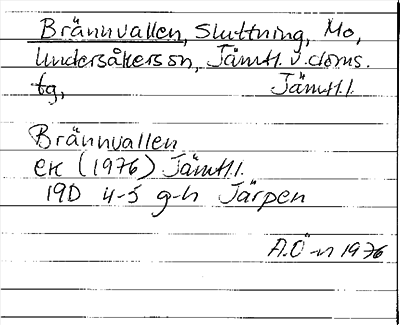 Brännvallen, Sluttning, Mo,
Undersåkers sn, Jämtl. v. doms.
tg, Jämtl. l.
Brännvallen
ek (1976) Jämtl. l.
19D 4-5 g-h Järpen
A.Ö-n 1976